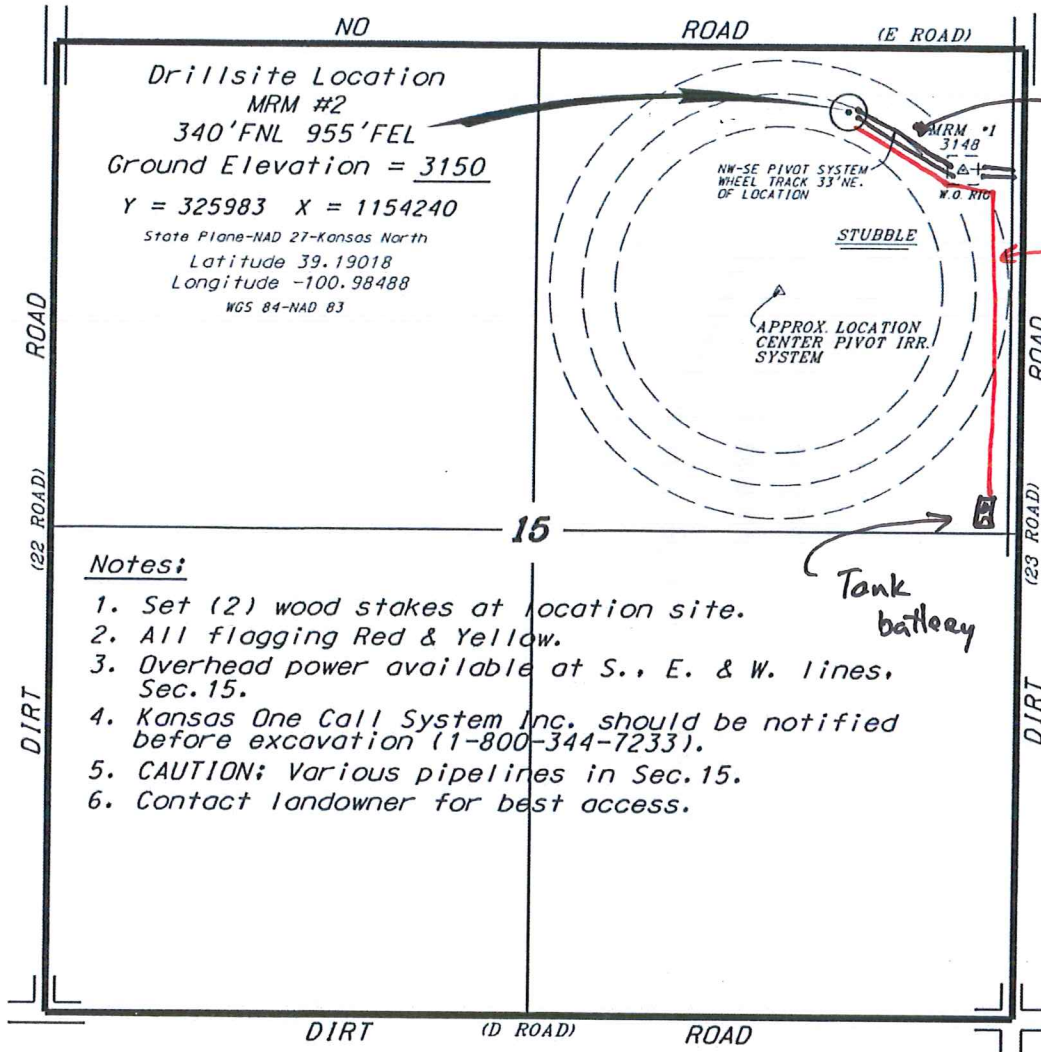 NO ROAD (E ROAD)
Drillsite Location
MRM #2
340'FNL 955'FEL
Ground Elevation = 3150
Y = 325983 X = 1154240
State Plane-NAD 27-Kansas North
Latitude 39.19018
Longitude -100.98488
WGS 84-NAD 83
MRM #1
3148
NW-SE PIVOT SYSTEM
WHEEL TRACK 33'NE.
OF LOCATION
W.O. RIG
STUBBLE
APPROX. LOCATION
CENTER PIVOT IRR.
SYSTEM
ROAD
(22 ROAD)
DIRT
ROAD
(23 ROAD)
DIRT
15
Tank
battery
Notes:
1. Set (2) wood stakes at location site.
2. All flagging Red & Yellow.
3. Overhead power available at S., E. & W. lines,
Sec.15.
4. Kansas One Call System Inc. should be notified
before excavation (1-800-344-7233).
5. CAUTION: Various pipelines in Sec.15.
6. Contact landowner for best access.
DIRT (D ROAD) ROAD